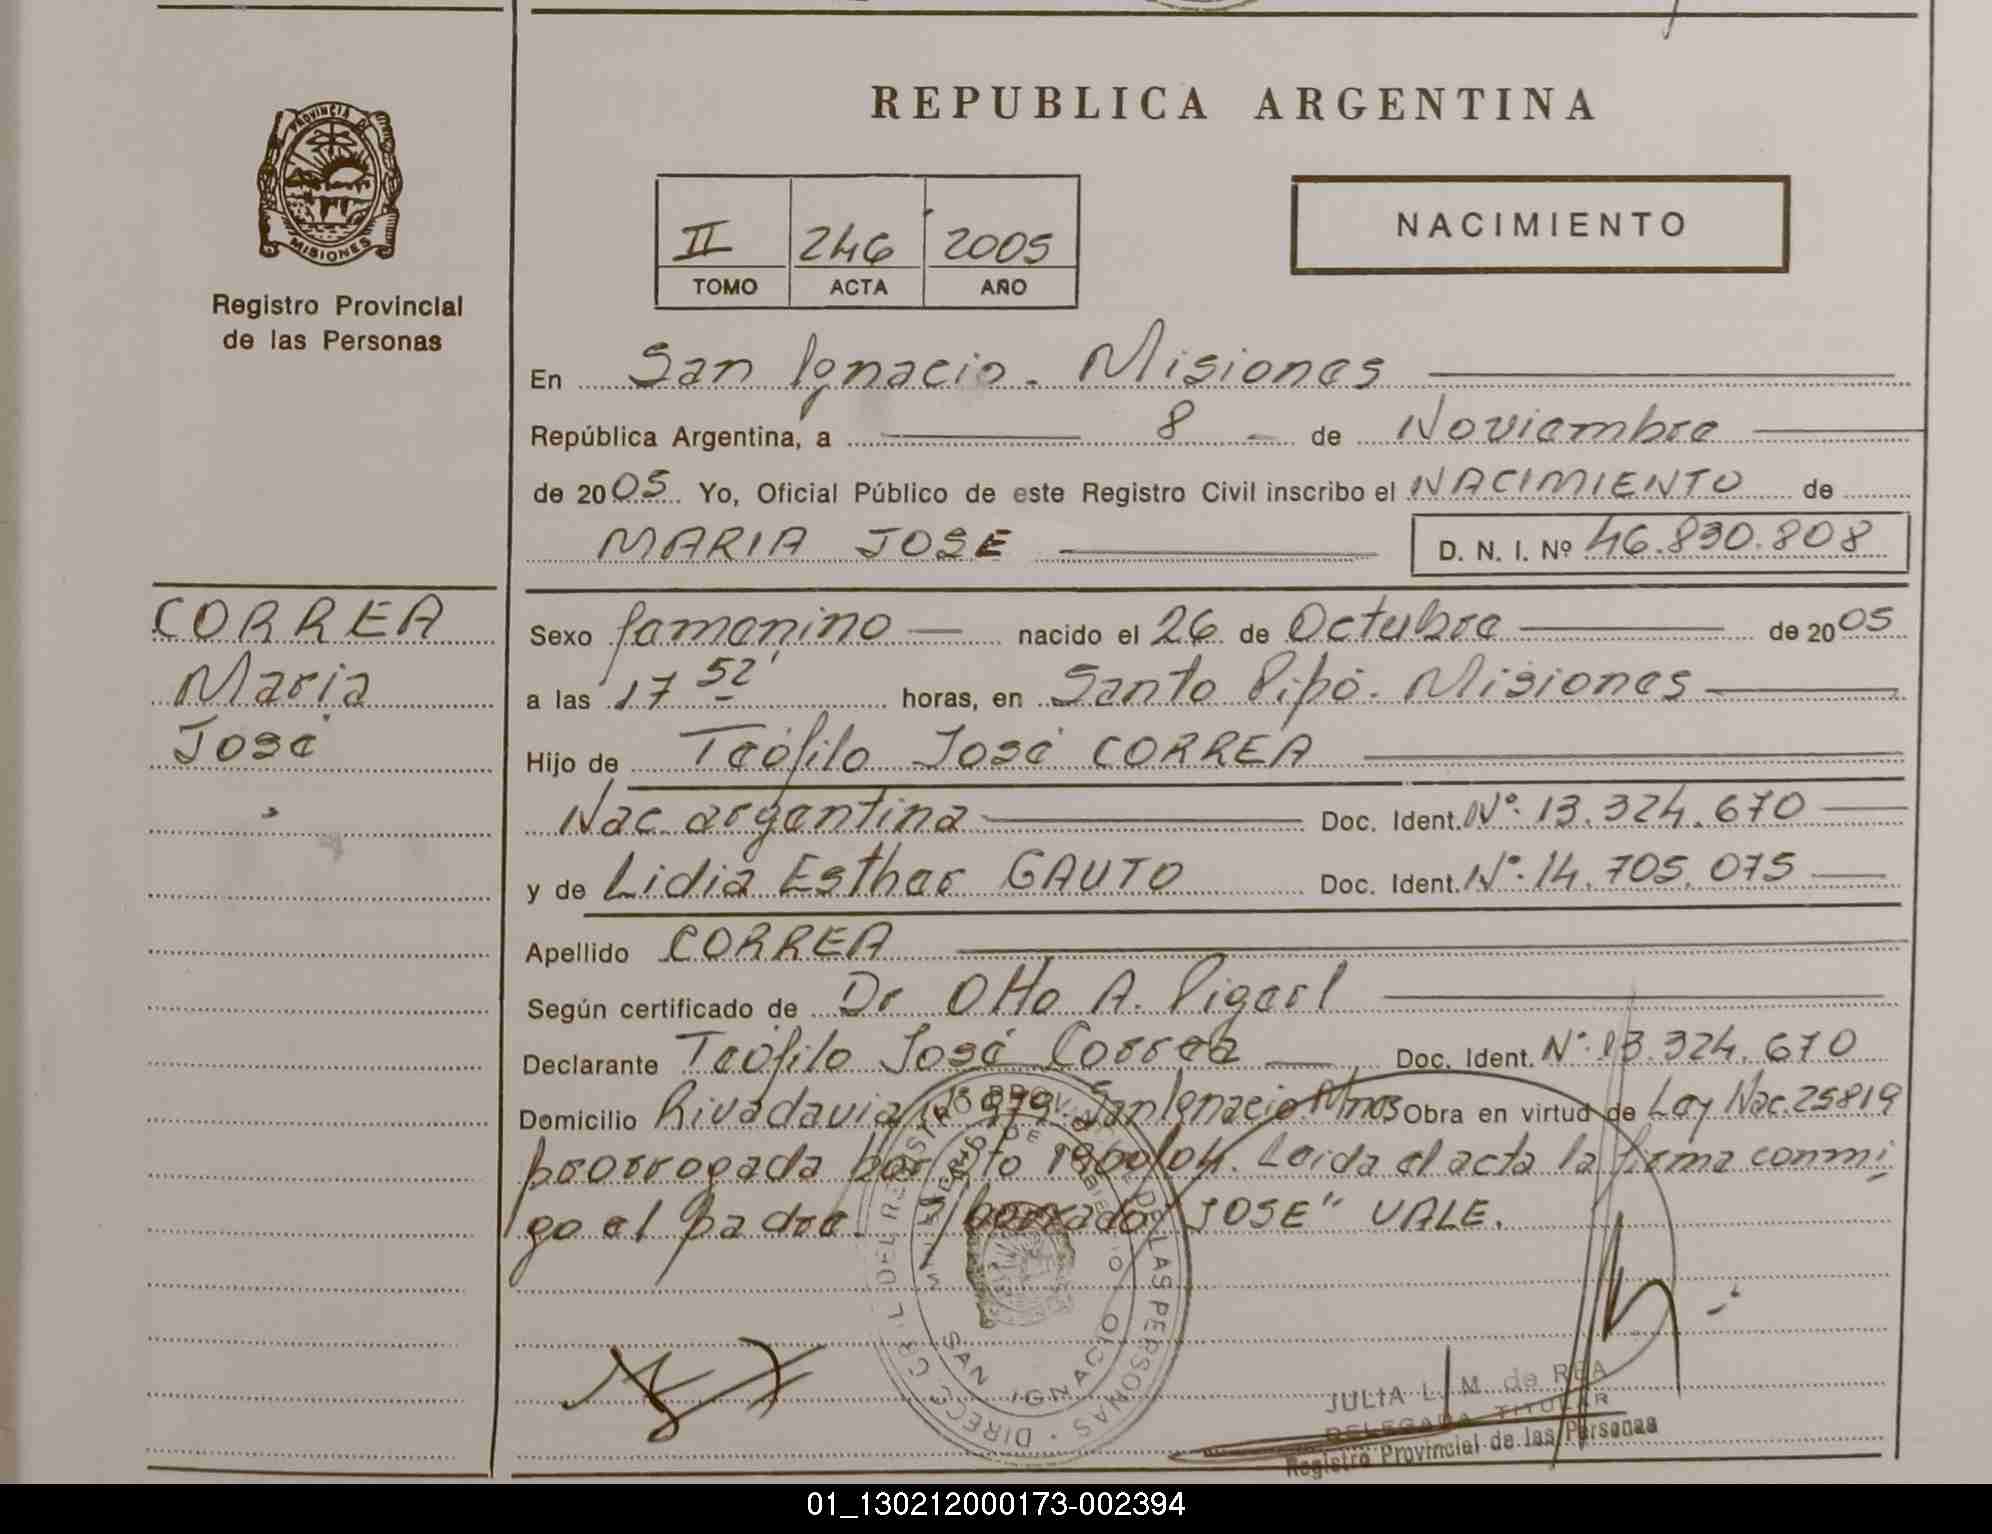 REPUBLICA ARGENTINA
PROVINCIA DE
MISIONES
Registro Provincial
de las Personas
II 246 2005
TOMO ACTA AÑO
NACIMIENTO
En San Ignacio. Misiones
República Argentina, a 8 de Noviembre
de 2005 Yo, Oficial Público de este Registro Civil inscribo el NACIMIENTO de
MARIA JOSE D. N. I. Nº 46.830.808
CORREA
Maria
José
Sexo femenino nacido el 26 de Octubre de 2005
a las 17 52' horas, en Santo Pipó. Misiones
Hijo de Teófilo José CORREA
Nac. argentina Doc. Ident. Nº. 13.324.670
y de Lidia Esther GAUTO Doc. Ident. Nº. 14.705.075
Apellido CORREA
Según certificado de Dr Otto A.
Declarante Teófilo José Correa Doc. Ident. Nº. 13.324.670
Domicilio Rivadavia 979. San Ignacio Mnes Obra en virtud de Ley Nac. 25819
prorrogada por Dto 1900/04. Leida el acta la firma conmi
go el padre. S/borrado "JOSE" VALE.
DIRECC. GRAL. DEL REGISTRO PROVINCIAL DE LAS PERSONAS
SAN IGNACIO
JULIA L. M. de REA
DELEGADA TITULAR
Registro Provincial de las Personas
01_130212000173-002394